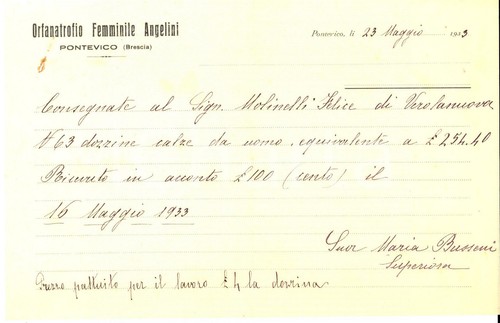 Orfanatrofio Femminile Angelini
PONTEVICO (Brescia)
Pontevico, li 23 Maggio 1933
Consegnate al Sign. Molinelli Felice di Verolanuova
N 63 dozzine calze da uomo equivalente a £ 254.40
Ricevuto in acconto £ 100 (cento) il
16 Maggio 1933
Suor Maria Busseni
Superiora
Prezzo pattuito per il lavoro £ 4 la dozzina